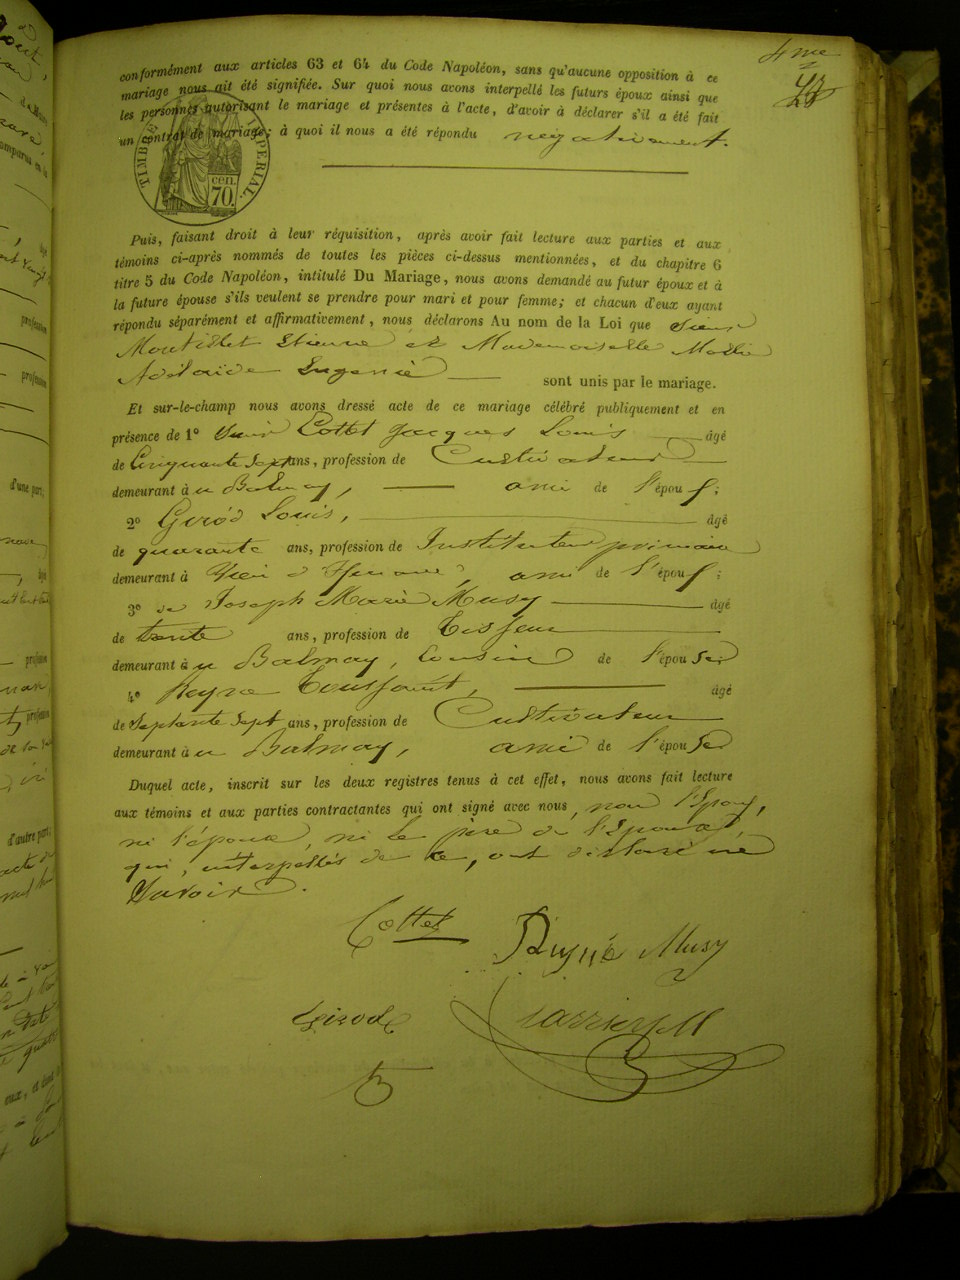 4me
conformément aux articles 63 et 64 du Code Napoléon, sans qu'aucune opposition à ce
mariage nous ait été signifiée. Sur quoi nous avons interpellé les futurs époux ainsi que
les personnes autorisant le mariage et présentes à l'acte, d'avoir à déclarer s'il a été fait
un contrat de mariage; à quoi il nous a été répondu négativement.
TIMBRE IMPÉRIAL.
cen.
70.
Puis, faisant droit à leur réquisition, après avoir fait lecture aux parties et aux
témoins ci-après nommés de toutes les pièces ci-dessus mentionnées, et du chapitre 6
titre 5 du Code Napoléon, intitulé Du Mariage, nous avons demandé au futur époux et à
la future épouse s'ils veulent se prendre pour mari et pour femme; et chacun d'eux ayant
répondu séparément et affirmativement, nous déclarons Au nom de la Loi que sieur
Montillet Etienne et Mademoiselle
Adelaide Eugenie sont unis par le mariage.
Et sur-le-champ nous avons dressé acte de ce mariage célébré publiquement et en
présence de 1° Cottet Jacques Louis âgé
de Cinquante sept ans, profession de Cultivateur
demeurant à Balmay, ami de l'époux;
2° Girod Louis, âgé
de quarante ans, profession de Instituteur primaire
demeurant à Vieu d'Izenave, ami de l'époux;
3° Joseph Marie Musy âgé
de trente ans, profession de Tisseur
demeurant à Balmay, cousin de l'épouse
4° Reyne Toussaint, âgé
de Septante Sept ans, profession de Cultivateur
demeurant à Balmay, ami de l'épouse
Duquel acte, inscrit sur les deux registres tenus à cet effet, nous avons fait lecture
aux témoins et aux parties contractantes qui ont signé avec nous non l'Epoux,
ni l'épouse, ni le père de l'Epouse,
qui, interpellés de ce, ont déclaré ne
Savoir.
Cottet
Musy
Girod